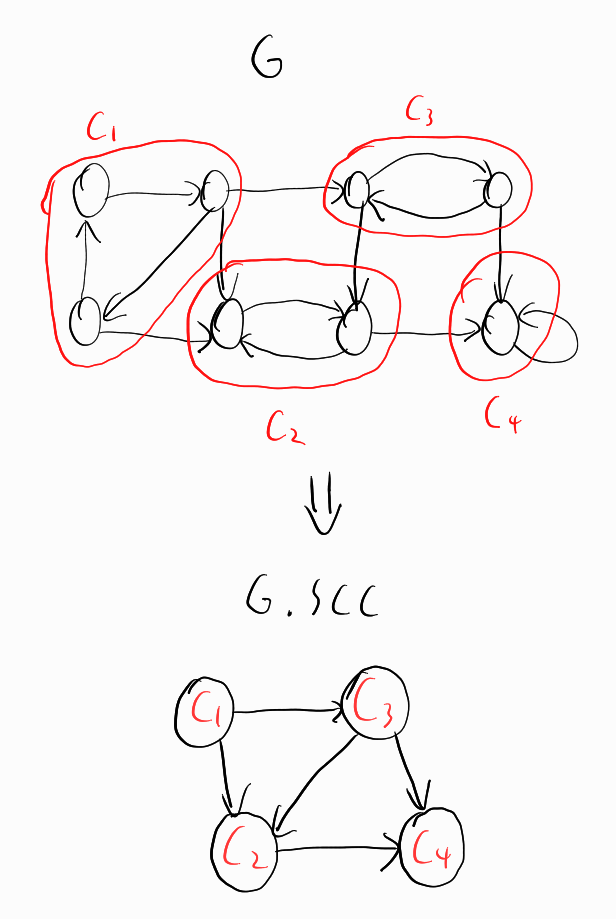 G
C1
C3
C2
C4
G.SCC
C1
C3
C2
C4